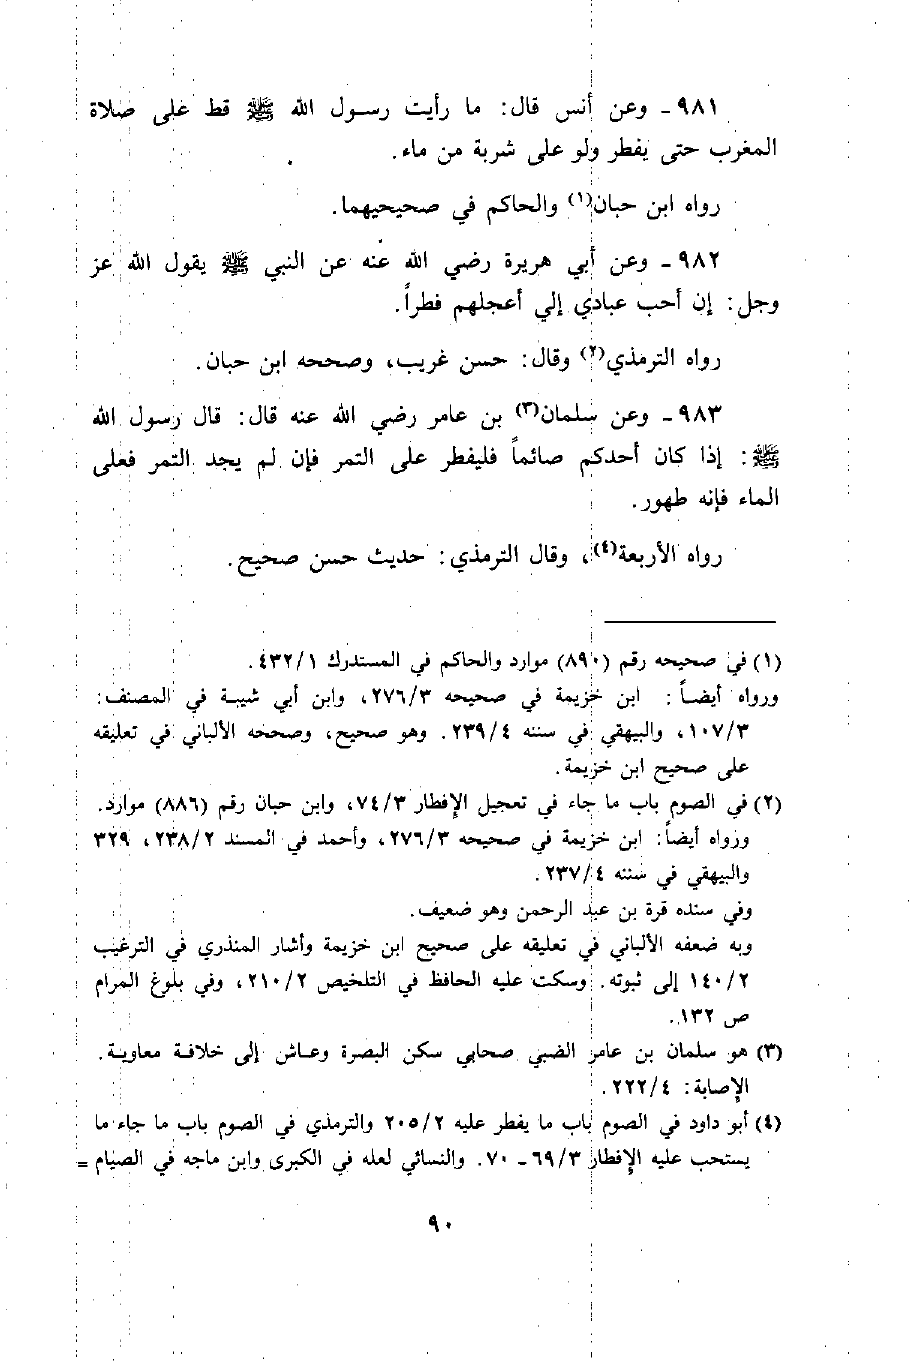 ٩٨١ ـ وعن أنس قال: ما رأيت رسول الله ﷺ قط على صلاة
المغرب حتى يفطر ولو على شربة من ماء.
رواه ابن حبان(١) والحاكم في صحيحيهما.
٩٨٢ ـ وعن أبي هريرة رضي الله عنه عن النبي ﷺ يقول الله عز
وجل: إن أحب عبادي إلي أعجلهم فطراً.
رواه الترمذي(٢) وقال: حسن غريب، وصححه ابن حبان.
٩٨٣ ـ وعن سلمان(٣) بن عامر رضي الله عنه قال: قال رسول الله
ﷺ: إذا كان أحدكم صائماً فليفطر على التمر فإن لم يجد التمر فعلى
الماء فإنه طهور.
رواه الأربعة(٤)، وقال الترمذي: حديث حسن صحيح.
(١) في صحيحه رقم (٨٩٠) موارد والحاكم في المستدرك ٤٣٢/١.
ورواه أيضاً: ابن خزيمة في صحيحه ٢٧٦/٣، وابن أبي شيبة في المصنف:
١٠٧/٣، والبيهقي في سننه ٢٣٩/٤. وهو صحيح، وصححه الألباني في تعليقه
على صحيح ابن خزيمة.
(٢) في الصوم باب ما جاء في تعجيل الإفطار ٧٤/٣، وابن حبان رقم (٨٨٦) موارد.
ورواه أيضاً: ابن خزيمة في صحيحه ٢٧٦/٣، وأحمد في المسند ٢٣٨/٢، ٣٢٩
والبيهقي في سننه ٢٣٧/٤.
وفي سنده قرة بن عبد الرحمن وهو ضعيف.
وبه ضعفه الألباني في تعليقه على صحيح ابن خزيمة وأشار المنذري في الترغيب
١٤٠/٢ إلى ثبوته. وسكت عليه الحافظ في التلخيص ٢١٠/٢، وفي بلوغ المرام
ص ١٣٢.
(٣) هو سلمان بن عامر الضبي صحابي سكن البصرة وعاش إلى خلافة معاوية.
الإصابة: ٢٢٢/٤.
(٤) أبو داود في الصوم باب ما يفطر عليه ٢٠٥/٢ والترمذي في الصوم باب ما جاء ما
يستحب عليه الإفطار ٦٩/٣ ـ ٧٠. والنسائي لعله في الكبرى وابن ماجه في الصيام =
٩٠